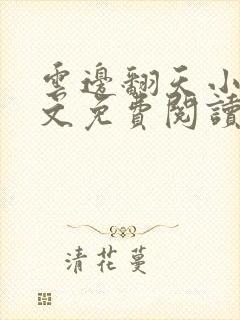 雲邊翻天小
文免費閱讀
清花蔓